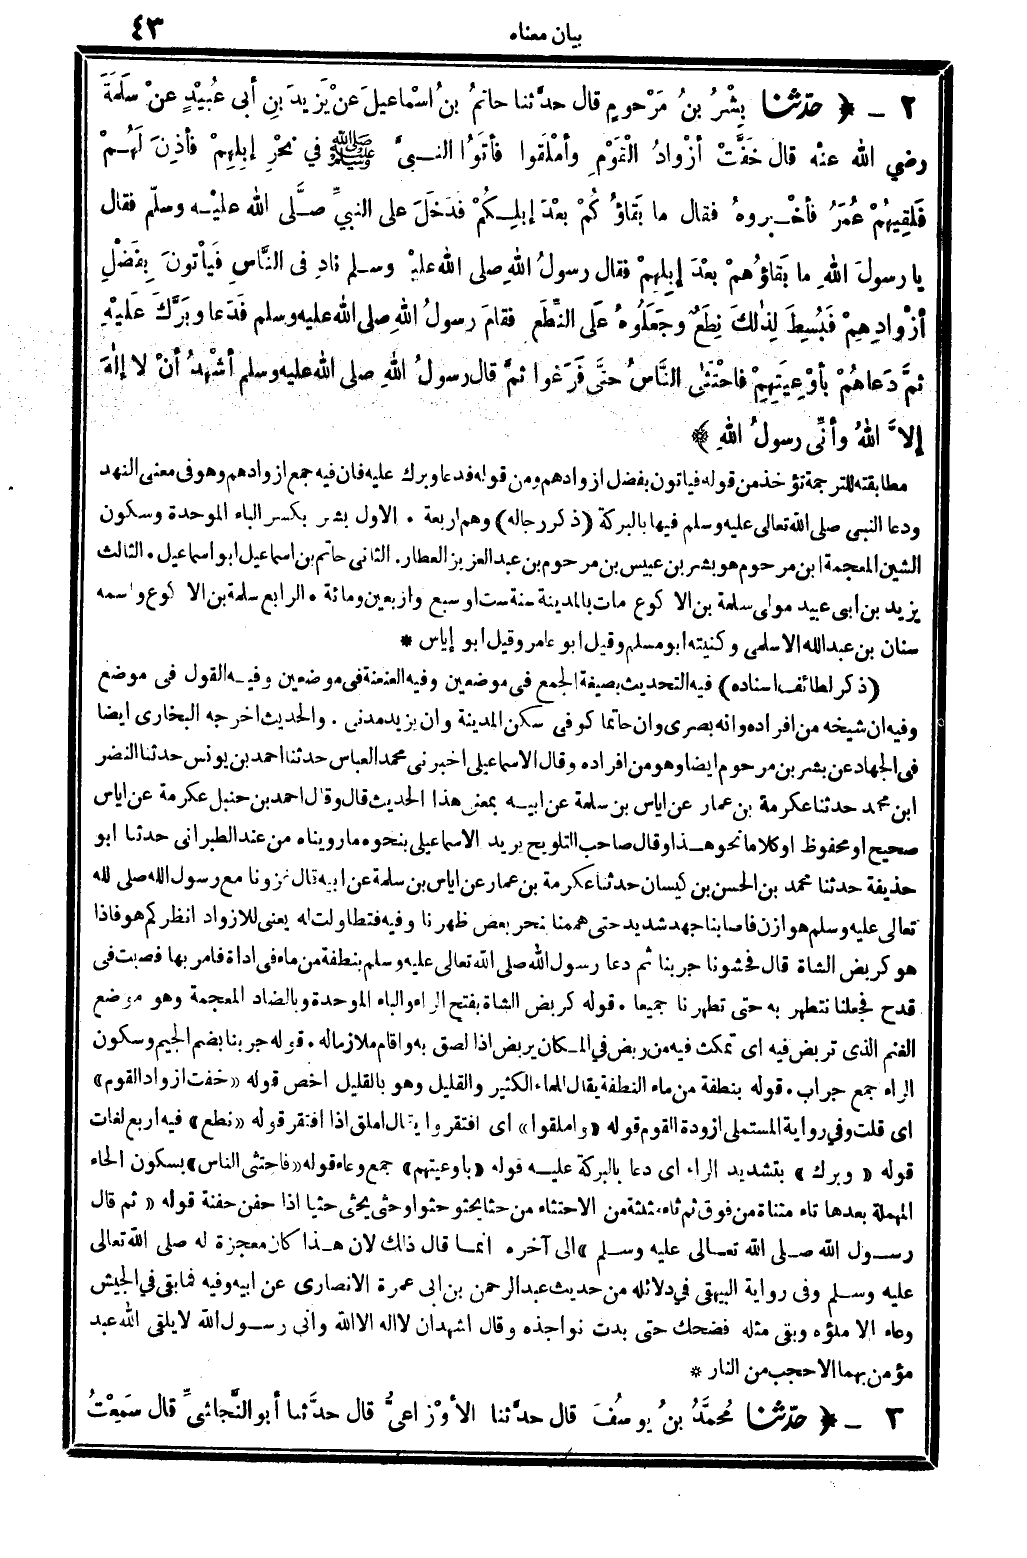 بيان معناه ٤٣
٢ ـ ﴿ حدّثنا بِشْرُ بنُ مَرْحومٍ قال حدَّثنا حاتمُ بنُ اسْماعيلَ عَنْ يَزِيدَ بنِ أبى عُبَيْدٍ عنْ سَلَمَةَ
رضي الله عنه قال خَفَّتْ أزْوادُ القَوْمِ وأمْلَقوا فأتَوُا النبيَّ ﷺ في نَحْرِ إبِلِهِمْ فأذِنَ لَهُمْ
فَلَقِيَهُمْ عُمَرُ فأخْبروهُ فقال ما بَقاؤُكُمْ بَعْدَ إبلِكُمْ فَدَخَلَ على النبيِّ صلَّى الله عليْه وسلّم فقال
يا رسولَ اللهِ ما بَقاؤُهمْ بَعْدَ إبِلِهِمْ فقال رسولُ اللهِ صلى الله عليْه وسلم نادِ فى النَّاسِ فَيَأْتونَ بِفَضْلِ
أزْوادِهِمْ فَبُسِطَ لِذٰلكَ نِطَعٌ وجَعَلُوهُ عَلَى النِّطَعِ فقامَ رسولُ اللهِ صلى الله عليه وسلم فَدَعا وبَرَّكَ عَلَيْهِ
ثمَّ دَعاهُمْ بأوْعِيَتِهِمْ فاحْتَثَى النَّاسُ حتَّى فَرَغوا ثمَّ قال رسولُ اللهِ صلى الله عليه وسلم أشْهَدُ أنْ لا إلٰهَ
إلاَّ اللهُ وأنِّى رسولُ اللهِ ﴾
مطابقته للترجمة تؤخذ من قوله فيأتون بفضل ازوادهم ومن قوله فدعا وبرك عليه فان فيه جمع ازوادهم وهو فى معنى النهد
ودعا النبى صلى الله تعالى عليه وسلم فيها بالبركة (ذكر رجاله) وهم اربعة . الاول بشر بكسر الباء الموحدة وسكون
الشين المعجمة ابن مرحوم هو بشر بن عبيس بن مرحوم بن عبد العزيز العطار. الثانى حاتم بن اسماعيل ابو اسماعيل . الثالث
يزيد بن ابى عبيد مولى سلمة بن الاكوع مات بالمدينة سنة ست او سبع واربعين ومائة . الرابع سلمة بن الاكوع واسمه
سنان بن عبدالله الاسلمى وكنيته ابو مسلم وقيل ابو عامر وقيل ابو إياس *
(ذكر لطائف اسناده) فيه التحديث بصيغة الجمع فى موضعين وفيه العنعنة فى موضعين وفيه القول فى موضع
وفيه ان شيخه من افراده وانه بصرى وان حاتما كوفى سكن المدينة وان يزيد مدنى . والحديث اخرجه البخارى ايضا
فى الجهاد عن بشر بن مرحوم ايضا وهو من افراده وقال الاسماعيلى اخبرنى محمد العباس حدثنا احمد بن يونس حدثنا النضر
ابن محمد حدثنا عكرمة بن عمار عن اياس بن سلمة عن ابيه بمعنى هذا الحديث قال وقال احمد بن حنبل عكرمة عن اياس
صحيح او محفوظ او كلاما نحو هذا وقال صاحب التلويح يريد الاسماعيلى بنحوه ما رويناه من عند الطبرانى حدثنا ابو
حذيفة حدثنا محمد بن الحسن بن كيسان حدثنا عكرمة بن عمار عن اياس بن سلمة عن ابيه قال غزونا مع رسول الله صلى لله
تعالى عليه وسلم هوازن فاصابنا جهد شديد حتى هممنا نحر بعض ظهرنا وفيه فتطاولت له يعنى للازواد انظر كم هو فاذا
هو كربض الشاة قال فحشونا جربنا ثم دعا رسول الله صلى الله تعالى عليه وسلم بنطفة من ماء فى اداة فامر بها فصبت فى
قدح فجعلنا نتطهر به حتى تطهرنا جميعا . قوله كربض الشاة بفتح الراء والباء الموحدة وبالضاد المعجمة وهو موضع
الغنم الذى تربض فيه اى تمكث فيه من ربض في المكان يربض اذا لصق به واقام ملازما له . قوله جربنا بضم الجيم وسكون
الراء جمع جراب . قوله بنطفة من ماء النطفة يقال للماء الكثير والقليل وهو بالقليل اخص قوله «خفت ازواد القوم»
اى قلت وفي رواية المستملى ازودة القوم قوله «واملقوا» اى افتقروا يقال املق اذا افتقر قوله «نطع» فيه اربع لغات
قوله « وبرك » بتشديد الراء اى دعا بالبركة عليه قوله «باوعيتهم» جمع وعاء قوله «فاحتثى الناس» بسكون الحاء
المهملة بعدها تاء مثناة من فوق ثم ثاء مثلثة من الاحتثاء من حثا يحثو حثوا وحثى يحثى حثيا اذا حفن حفنة قوله « ثم قال
رسول الله صلى الله تعالى عليه وسلم »الى آخره انما قال ذلك لان هذا كان معجزة له صلى الله تعالى
عليه وسلم وفى رواية البيهقى فى دلائله من حديث عبد الرحمن بن ابى عمرة الانصارى عن ابيه وفيه فما بقى في الجيش
وعاء الا ملؤه وبقى مثله فضحك حتى بدت نواجذه وقال اشهد ان لا اله الا الله وانى رسول الله لا يلقى الله عبد
مؤمن بهما الا حجب من النار *
٣ ـ ﴿ حدّثنا مُحمَّدُ بنُ يوسُفَ قال حدَّثنا الأوْزاعىُّ قال حدَّثنا أبو النَّجاشىِّ قال سَمِعْتُ